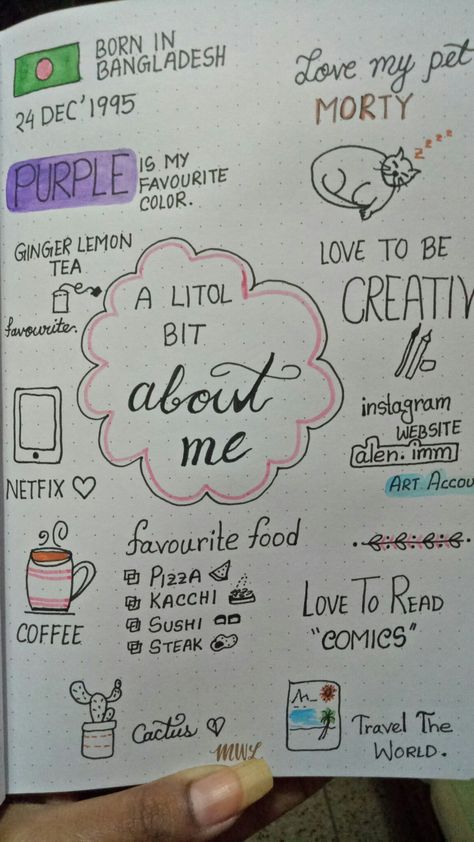 BORN IN
BANGLADESH
24 DEC'1995
Love my pet
MORTY
zzzz
PURPLE
IS MY
FAVOURITE
COLOR.
GINGER LEMON
TEA
favourite.
A LITOL
BIT
about
me
LOVE TO BE
CREATIV
instagram
WEBSITE
alen.imm
ART ACCOU
NETFIX
COFFEE
favourite food
PIZZA
KACCHI
SUSHI
STEAK
LOVE TO READ
"COMICS"
Cactus
MWL
Travel THE
WORLD.